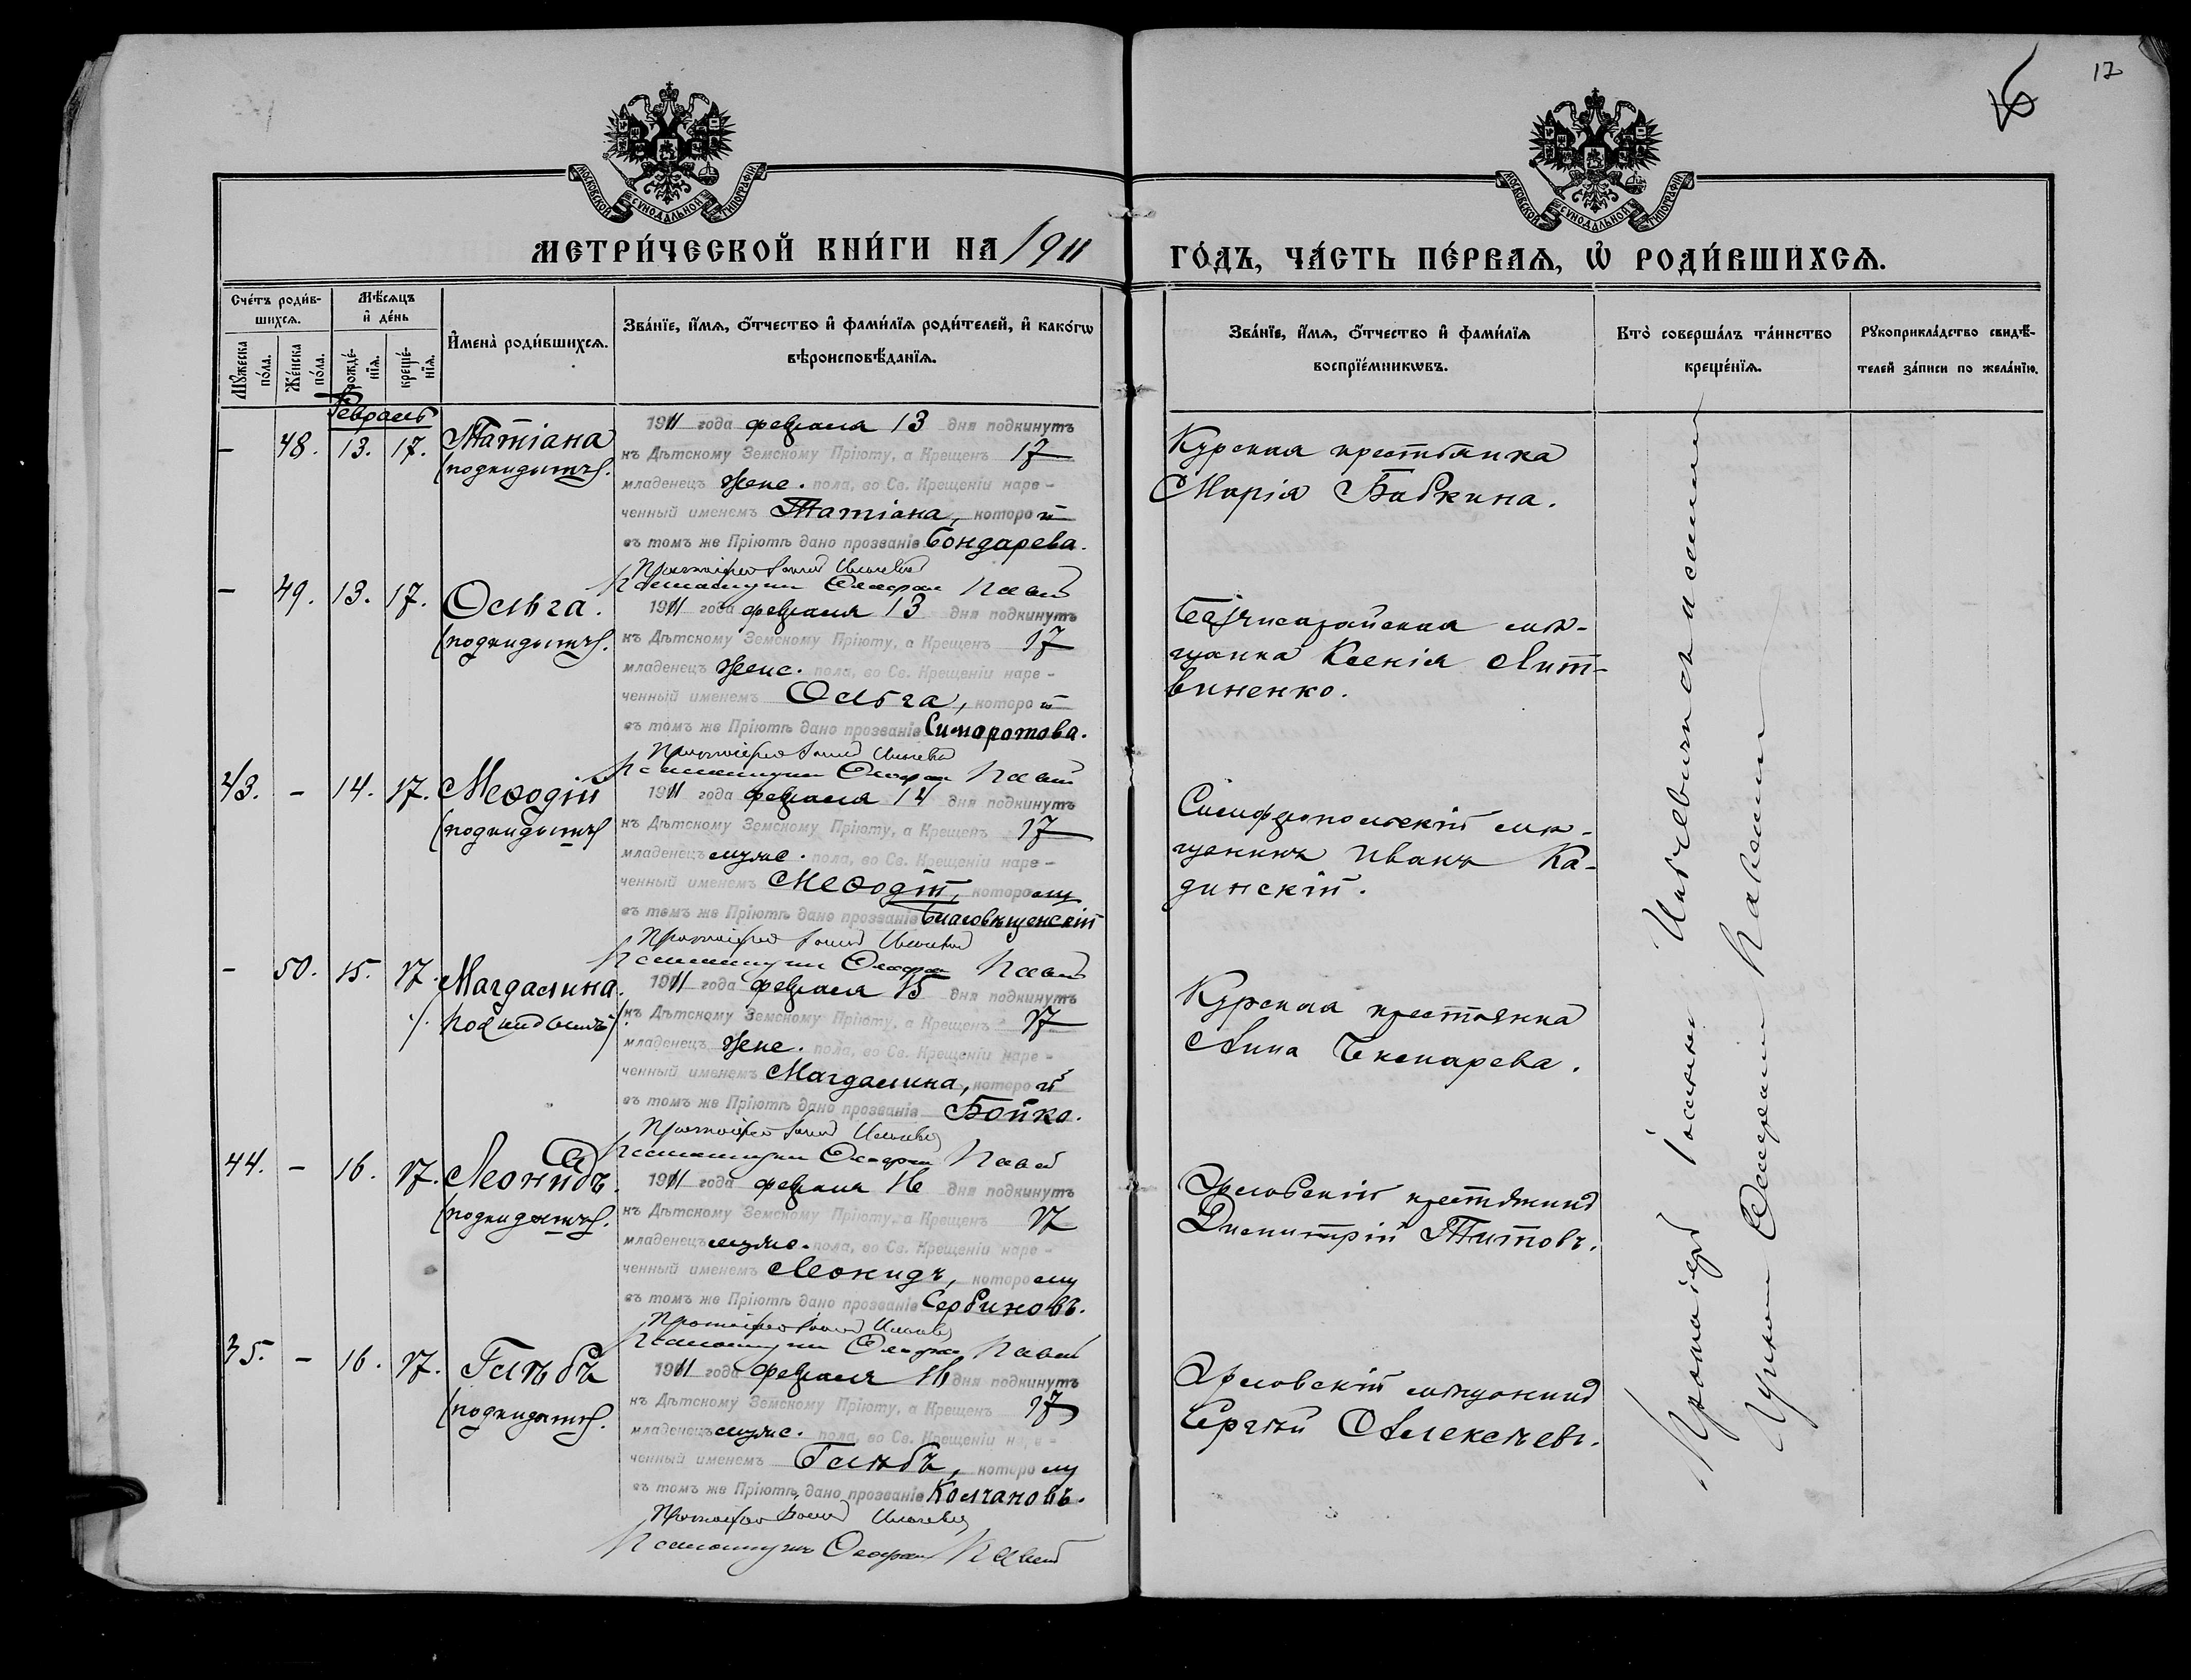 17
МОСКОВСКОЙ СУНОДАЛЬНОЙ ТИПОГРАФІИ
МОСКОВСКОЙ СУНОДАЛЬНОЙ ТИПОГРАФІИ
МЕТРИ́ЧЕСКОЙ КНИ́ГИ НА 1911 ГО́ДЪ, ЧА́СТЬ ПЕ́РВАѦ, Ѡ҆ РОДИ́ВШИХСѦ.
Сче́тъ роди́в-
шихсѧ.
Мꙋ́жеска по́ла.
Же́нска по́ла.
Мѣ́сѧцъ
и҆ де́нь
рожде́-
нїѧ.
креще́-
нїѧ.
И҆мена̀ роди́вшихсѧ.
Зва́нїе, и҆́мѧ, ѻ҆́тчество и҆ фами́лїѧ роди́телей, и҆ како́гѡ
вѣроисповѣ́данїѧ.
Зва́нїе, и҆́мѧ, ѻ҆́тчество и҆ фами́лїѧ
воспрїе́мникѡвъ.
Кто̀ соверша́лъ та́инство
креще́нїѧ.
Рꙋкоприкла́дство свидѣ́-
телей за́писи по жела́нїю.
Февраль
– 48. 13. 17. Татіана
(подкидышъ).
1911 года февраля 13 дня подкинутъ
къ Дѣтскому Земскому Пріюту, а Крещенъ 17
младенецъ женс. пола, во Св. Крещеніи наре-
ченный именемъ Татіана, которой
въ томъ же Пріютѣ дано прозваніе Бондарева.
Курская крестьянка
Марія Бабкина.
– 49. 13. 17. Ольга.
(подкидышъ).
1911 года февраля 13 дня подкинутъ
къ Дѣтскому Земскому Пріюту, а Крещенъ 17
младенецъ женс. пола, во Св. Крещеніи наре-
ченный именемъ Ольга, которой
въ томъ же Пріютѣ дано прозваніе
мѣ-
щанка Ксенія Лит-
виненко.
43. – 14. 17. Меѳодій
(подкидышъ)
1911 года февраля 14 дня подкинутъ
къ Дѣтскому Земскому Пріюту, а Крещенъ 17
младенецъ мужс. пола, во Св. Крещеніи наре-
ченный именемъ Меѳодій, которому
въ томъ же Пріютѣ дано прозваніе Благовѣщенскій
Симферопольскій мѣ-
щанинъ Иванъ Ка-
динскій.
– 50. 15. 17. Магдалина.
(Подкидышъ)
1911 года февраля 15 дня подкинутъ
къ Дѣтскому Земскому Пріюту, а Крещенъ 17
младенецъ женс. пола, во Св. Крещеніи наре-
ченный именемъ Магдалина, которой
въ томъ же Пріютѣ дано прозваніе Бойко.
Курская крестьянка
Анна
44. – 16. 17. Леонидъ.
(подкидышъ).
1911 года февраля 16 дня подкинутъ
къ Дѣтскому Земскому Пріюту, а Крещенъ 17
младенецъ мужс. пола, во Св. Крещеніи наре-
ченный именемъ Леонидъ, которому
въ томъ же Пріютѣ дано прозваніе Сербиновъ.
Орловскій крестьянинъ
Димитрій Титовъ.
35. – 16. 17. Глѣбъ
(подкидышъ).
1911 года февраля 16 дня подкинутъ
къ Дѣтскому Земскому Пріюту, а Крещенъ 17
младенецъ мужс. пола, во Св. Крещеніи наре-
ченный именемъ Глѣбъ, которому
въ томъ же Пріютѣ дано прозваніе Колчановъ.
Орловскій мѣщанинъ
Сергѣй Алексѣевъ.
Протоіерей